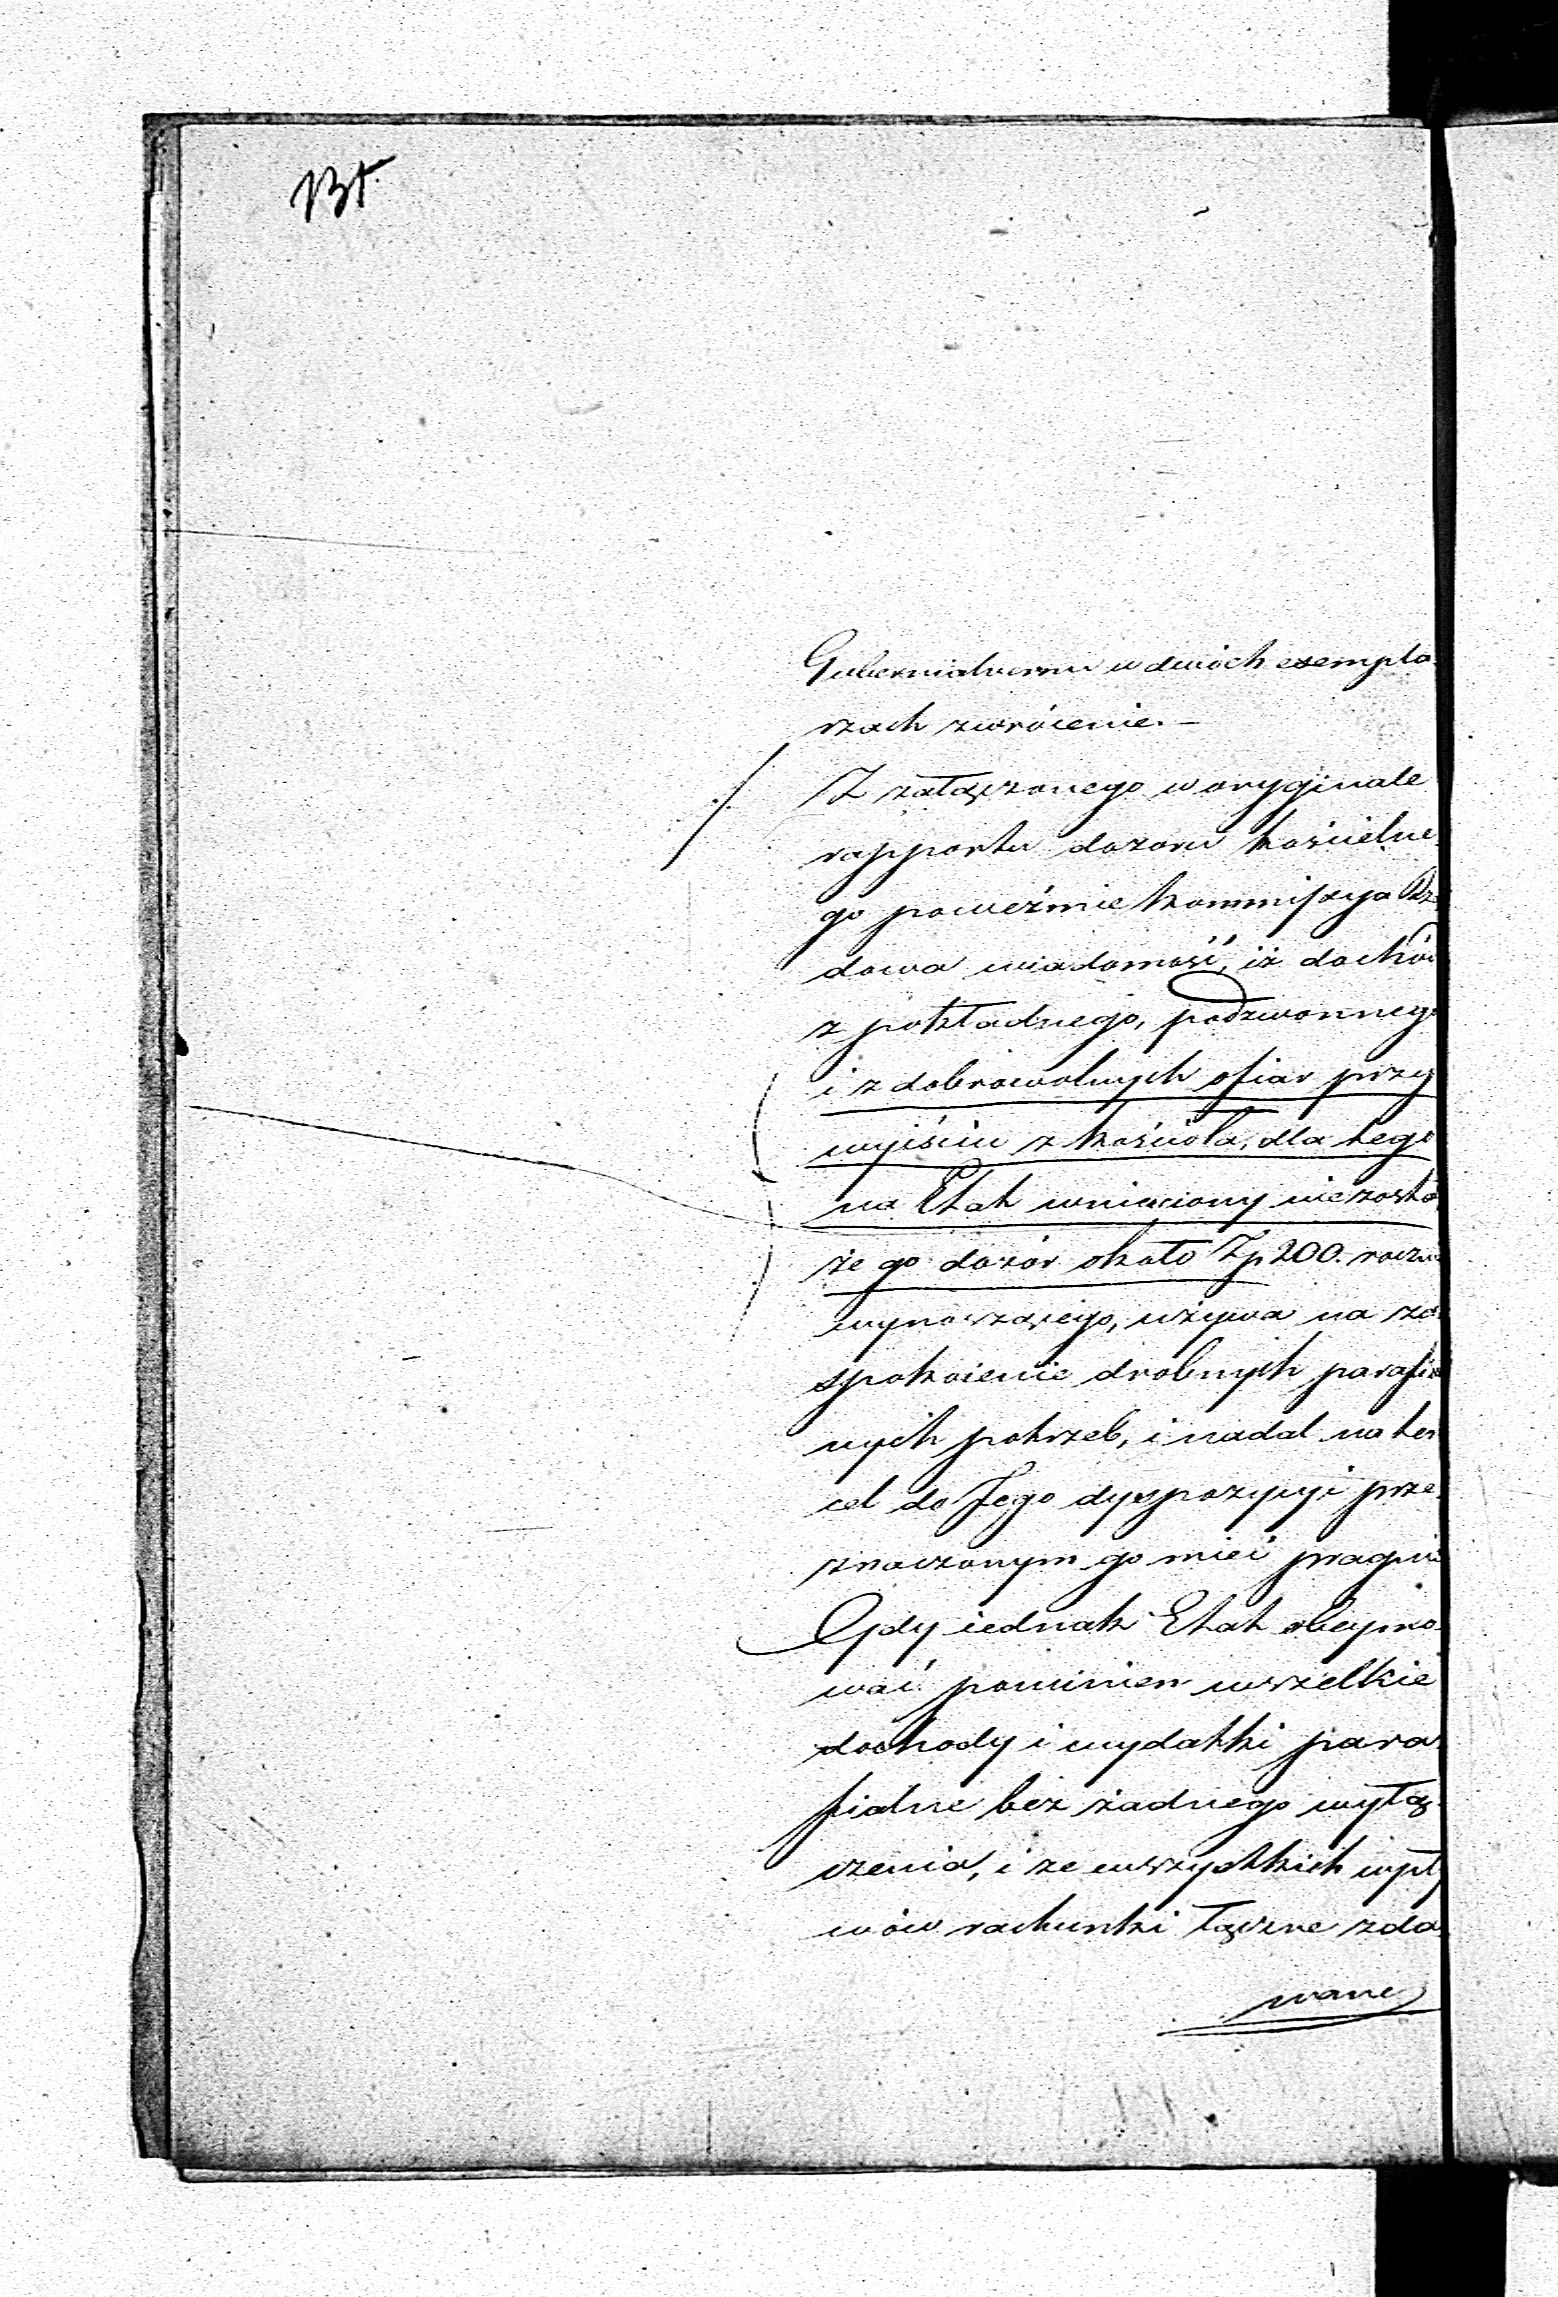 131.
Gubernialnemu w dwóch exempla-
rzach zwrócenie. –
Z załączonego w oryginale
rapportu dozoru kościelne-
go poweźmie Kommissya Rzą
dowa wiadomość, iż dochód
z pokładnego, podzwonnego
i z dobrowolnych ofiar przy
wyjściu z kościoła, dla tego
na Etat wniesiony nie został
że go dozór około Zp 200. rocznie
wynoszącego, używa na za-
spokoienie drobnych parafial
nych potrzeb, i nadal na ten
cel do Jego dyspozycyi prze-
znaczonym go mieć pragnie
Gdy iednak Etat obeymo-
wać powinien wszelkie
dochody i wydatki para-
fialne bez żadnego wyłą-
czenia, i ze wszystkich wpły
wów rachunki łączne zda-
wane